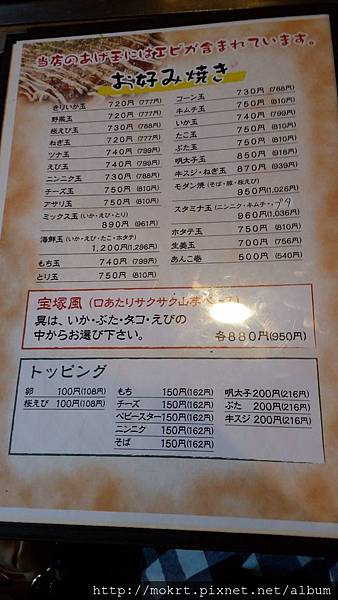 当店のあげ玉にはエビが含まれています。
お好み焼き
きりいか玉 720円(777円)
野菜玉 720円(777円)
桜えび玉 730円(788円)
ねぎ玉 720円(777円)
ツナ玉 740円(799円)
えび玉 740円(799円)
ニンニク玉 730円(788円)
チーズ玉 750円(810円)
アサリ玉 750円(810円)
ミックス玉(いか・えび・とり)
890円(961円)
海鮮玉(いか・えび・たこ・ホタテ)
1,200円(1,296円)
もち玉 740円(799円)
とり玉 750円(810円)
コーン玉 730円(788円)
キムチ玉 750円(810円)
いか玉 740円(799円)
たこ玉 750円(810円)
ぶた玉 750円(810円)
明太子玉 850円(918円)
牛スジ・ねぎ玉 870円(939円)
モダン焼(そば・豚・桜えび)
950円(1,026円)
スタミナ玉(ニンニク・キムチ・ブタ
960円(1,036円)
ホタテ玉 750円(810円)
生姜玉 700円(756円)
あんこ巻 500円(540円)
宝塚風(口あたりサクサク山芋ベース)
具は、いか・ぶた・タコ・えびの
中からお選び下さい。 各880円(950円)
トッピング
卵 100円(108円)
桜えび 100円(108円)
もち 150円(162円)
チーズ 150円(162円)
ベビースター 150円(162円)
ニンニク 150円(162円)
そば 150円(162円)
明太子 200円(216円)
ぶた 200円(216円)
牛スジ 200円(216円)
http://mokrt.pixnet.net/album